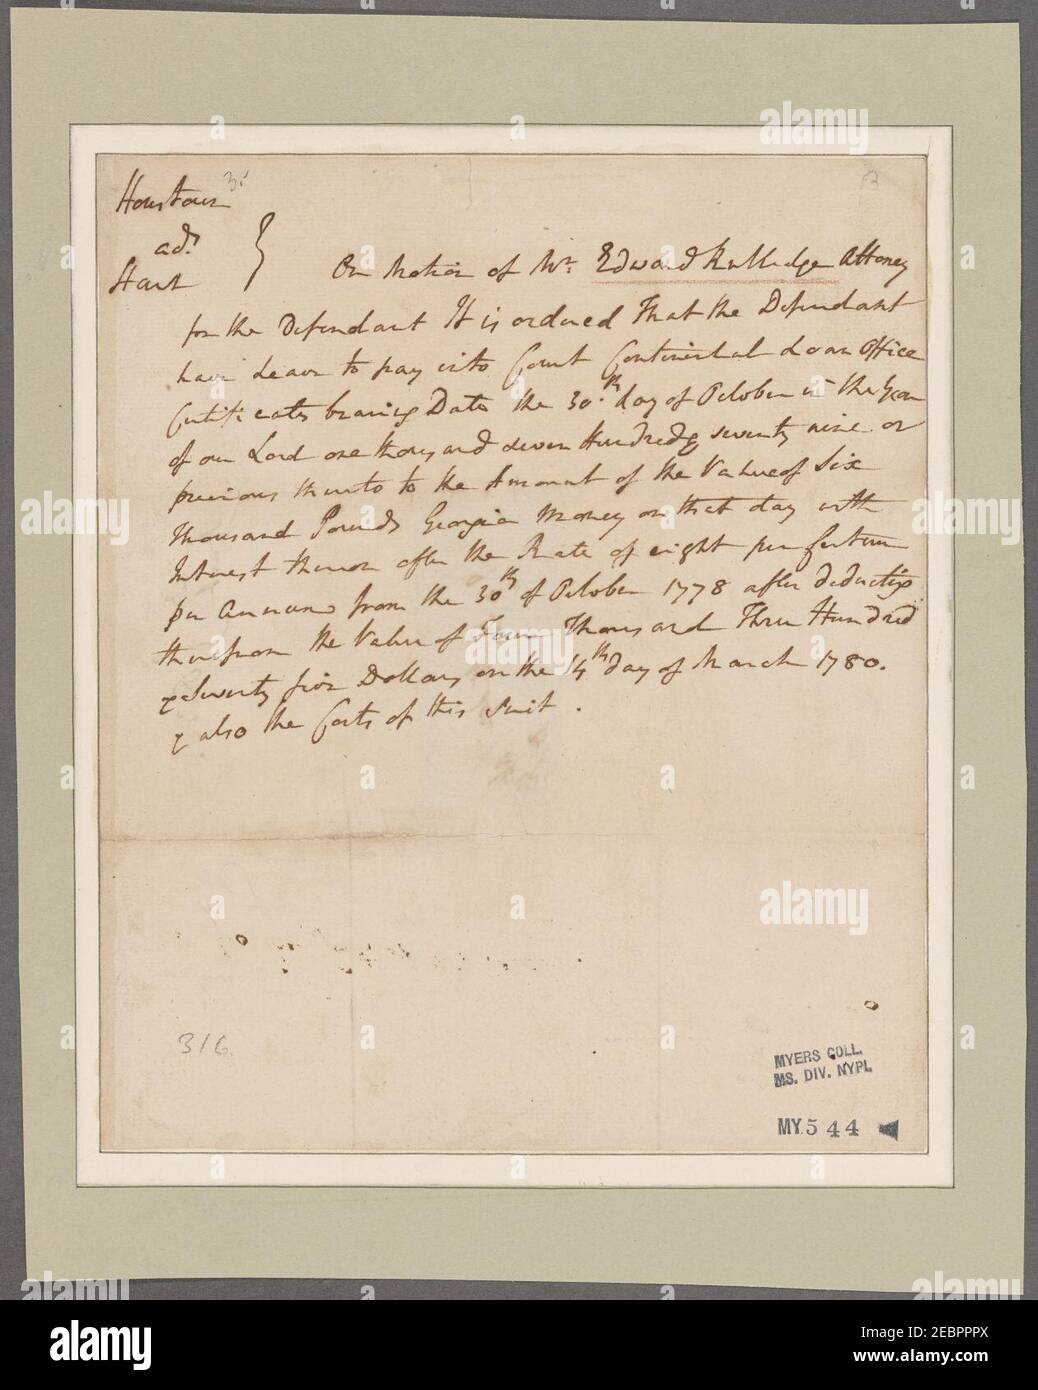 Houstoun 35
ads
Hart
On Motion of Mr. Edward Rutledge Attorney
for the Defendant It is ordered That the Defendant
have Leave to pay into Court Continental Loan Office
Certificates bearing Date the 30.th day of October in the Year
of our Lord one thousand seven Hundred & seventy nine or
previous thereto to the Amount of the Value of Six
thousand Pounds Georgia Money on that day with
Interest thereon after the Rate of eight per Centum
per Annum from the 30th of October 1778 after deducting
therefrom the Value of Four Thousand Three Hundred
& Seventy five Dollars on the 14th day of March 1780.
& also the Costs of this Suit.
316
MYERS COLL.
MS. DIV. NYPL
MY 544
alamy
Image ID: 2EBPPPX
www.alamy.com